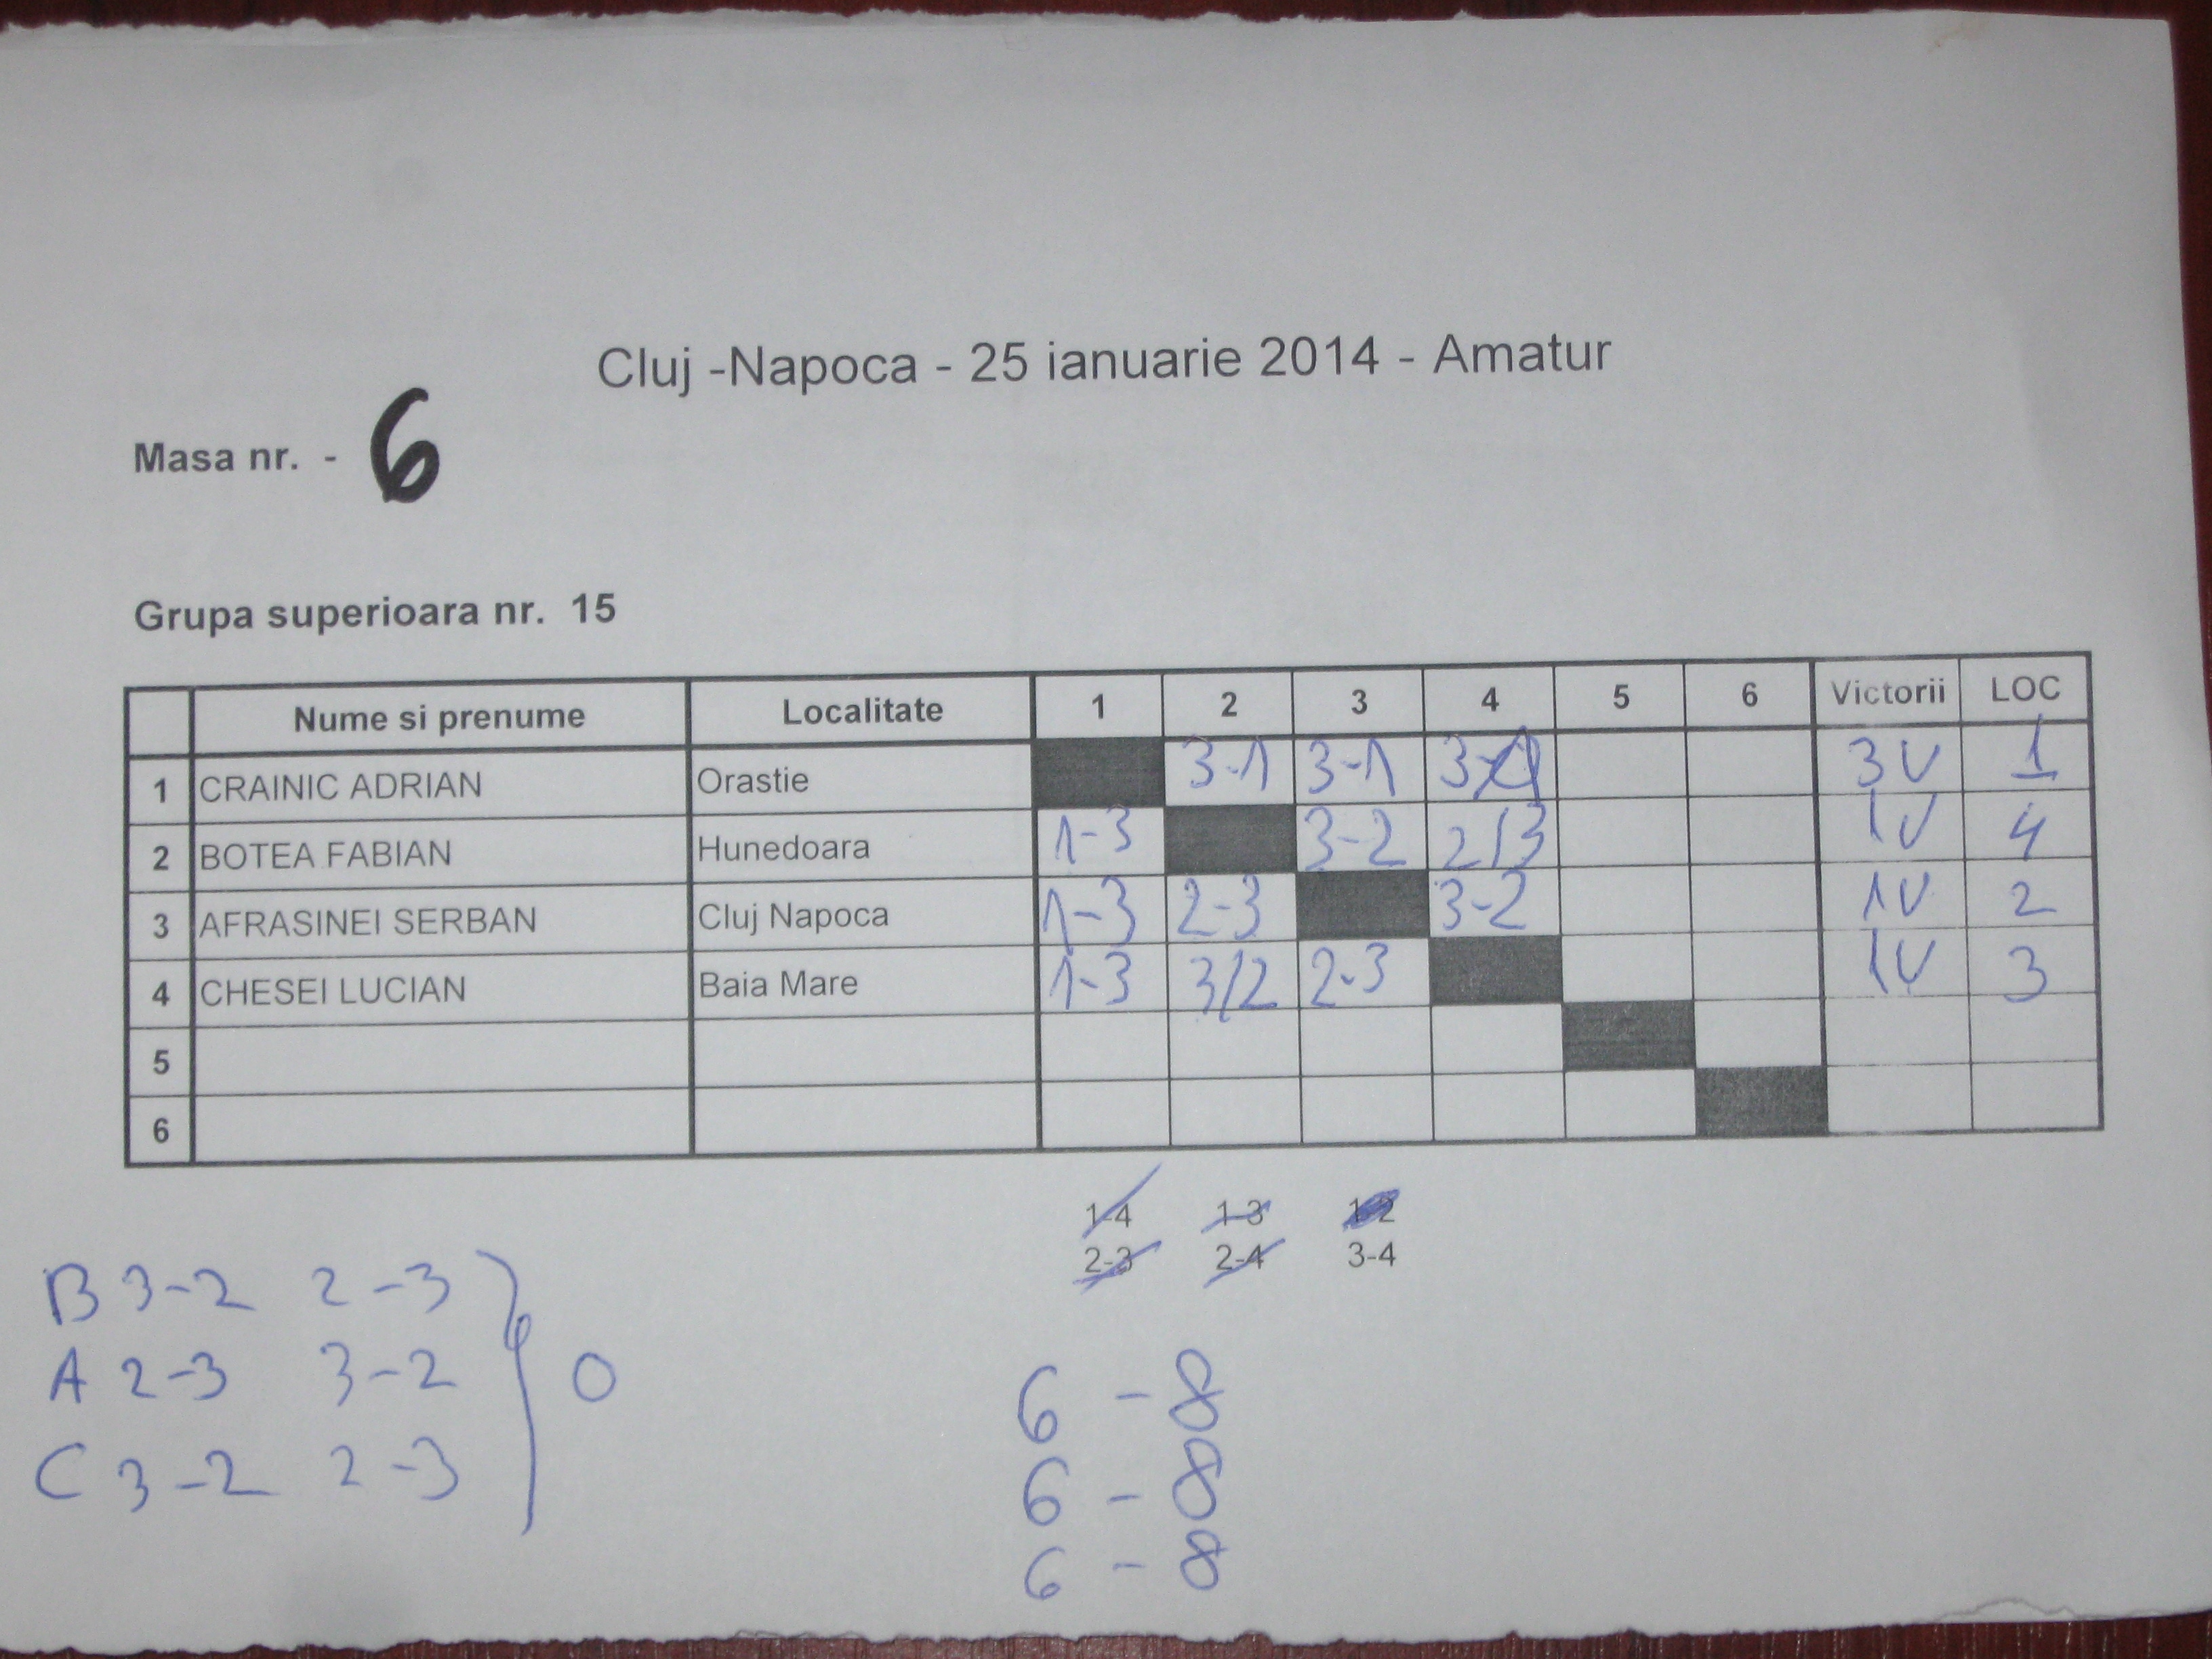 Cluj -Napoca - 25 ianuarie 2014 - Amatur
Masa nr. - 6
Grupa superioara nr. 15
Nume si prenume Localitate 1 2 3 4 5 6 Victorii LOC
1 CRAINIC ADRIAN Orastie 3-1 3-1 3- 3V 1
2 BOTEA FABIAN Hunedoara 1-3 3-2 2/3 1V 4
3 AFRASINEI SERBAN Cluj Napoca 1-3 2-3 3-2 1V 2
4 CHESEI LUCIAN Baia Mare 1-3 3/2 2-3 1V 3
5
6
1-4 1-3 1-2
2-3 2-4 3-4
B 3-2 2-3
A 2-3 3-2 0
C 3-2 2-3
6 - 8
6 - 8
6 - 8